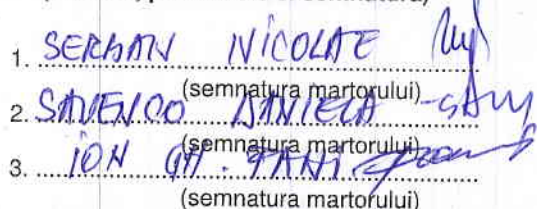 1. SERBAN NICOLAE
(semnatura martorului)
2. SAVENCO DANIELA
(semnatura martorului)
3. ION GH.
(semnatura martorului)